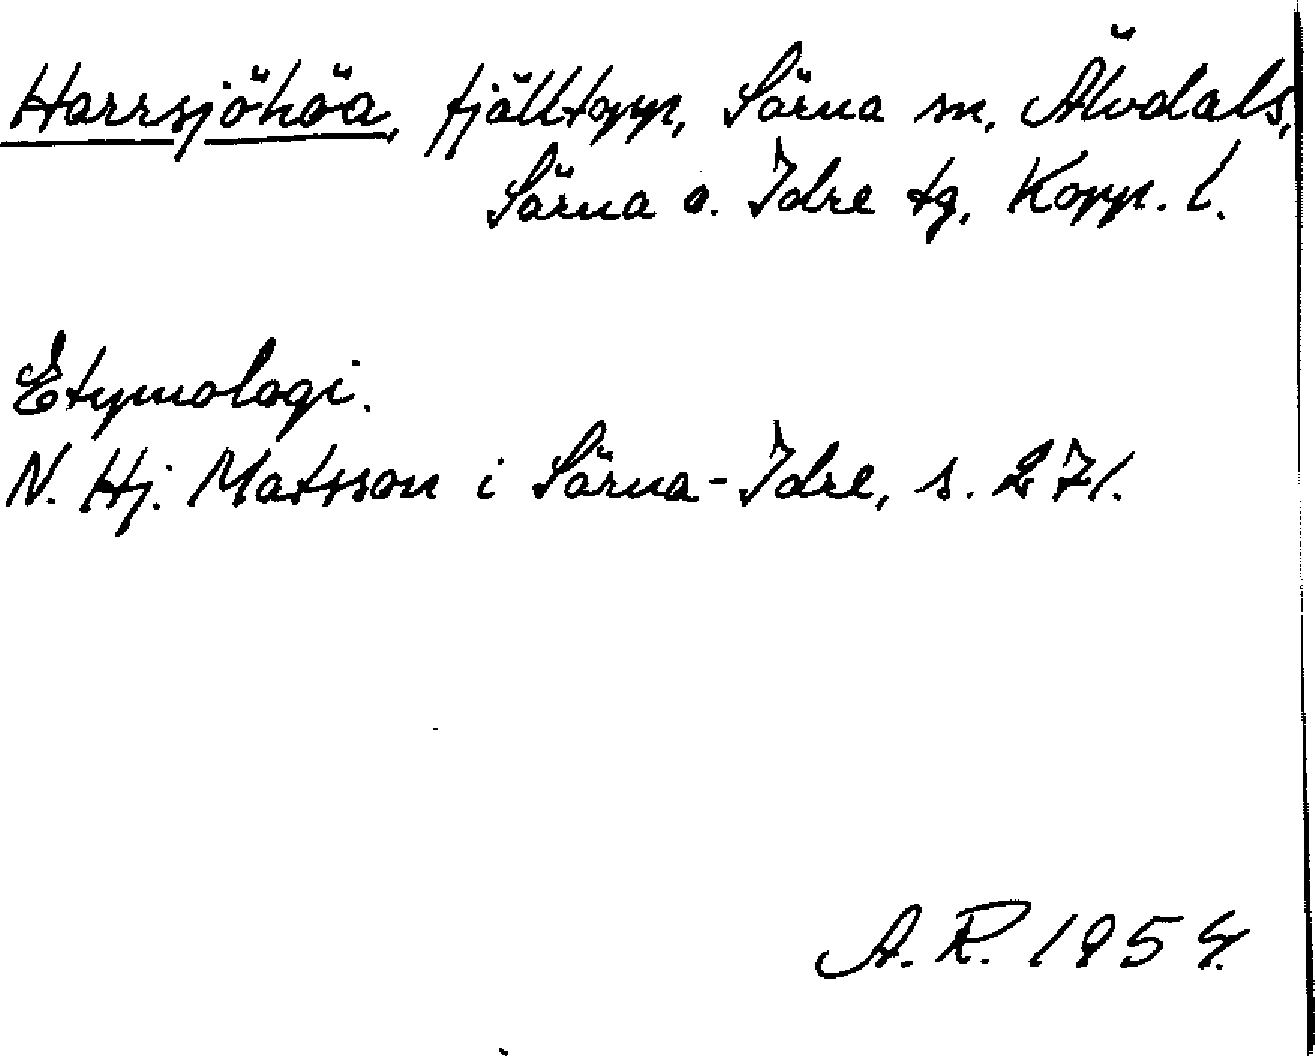 Harrsjöhöa, fjälltopp, Särna sn, Älvdals,
Särna o. Idre tg, Kopp. l.
Etymologi.
N. Hj. Matsson i Särna-Idre, s. 271.
A. R. 1954.